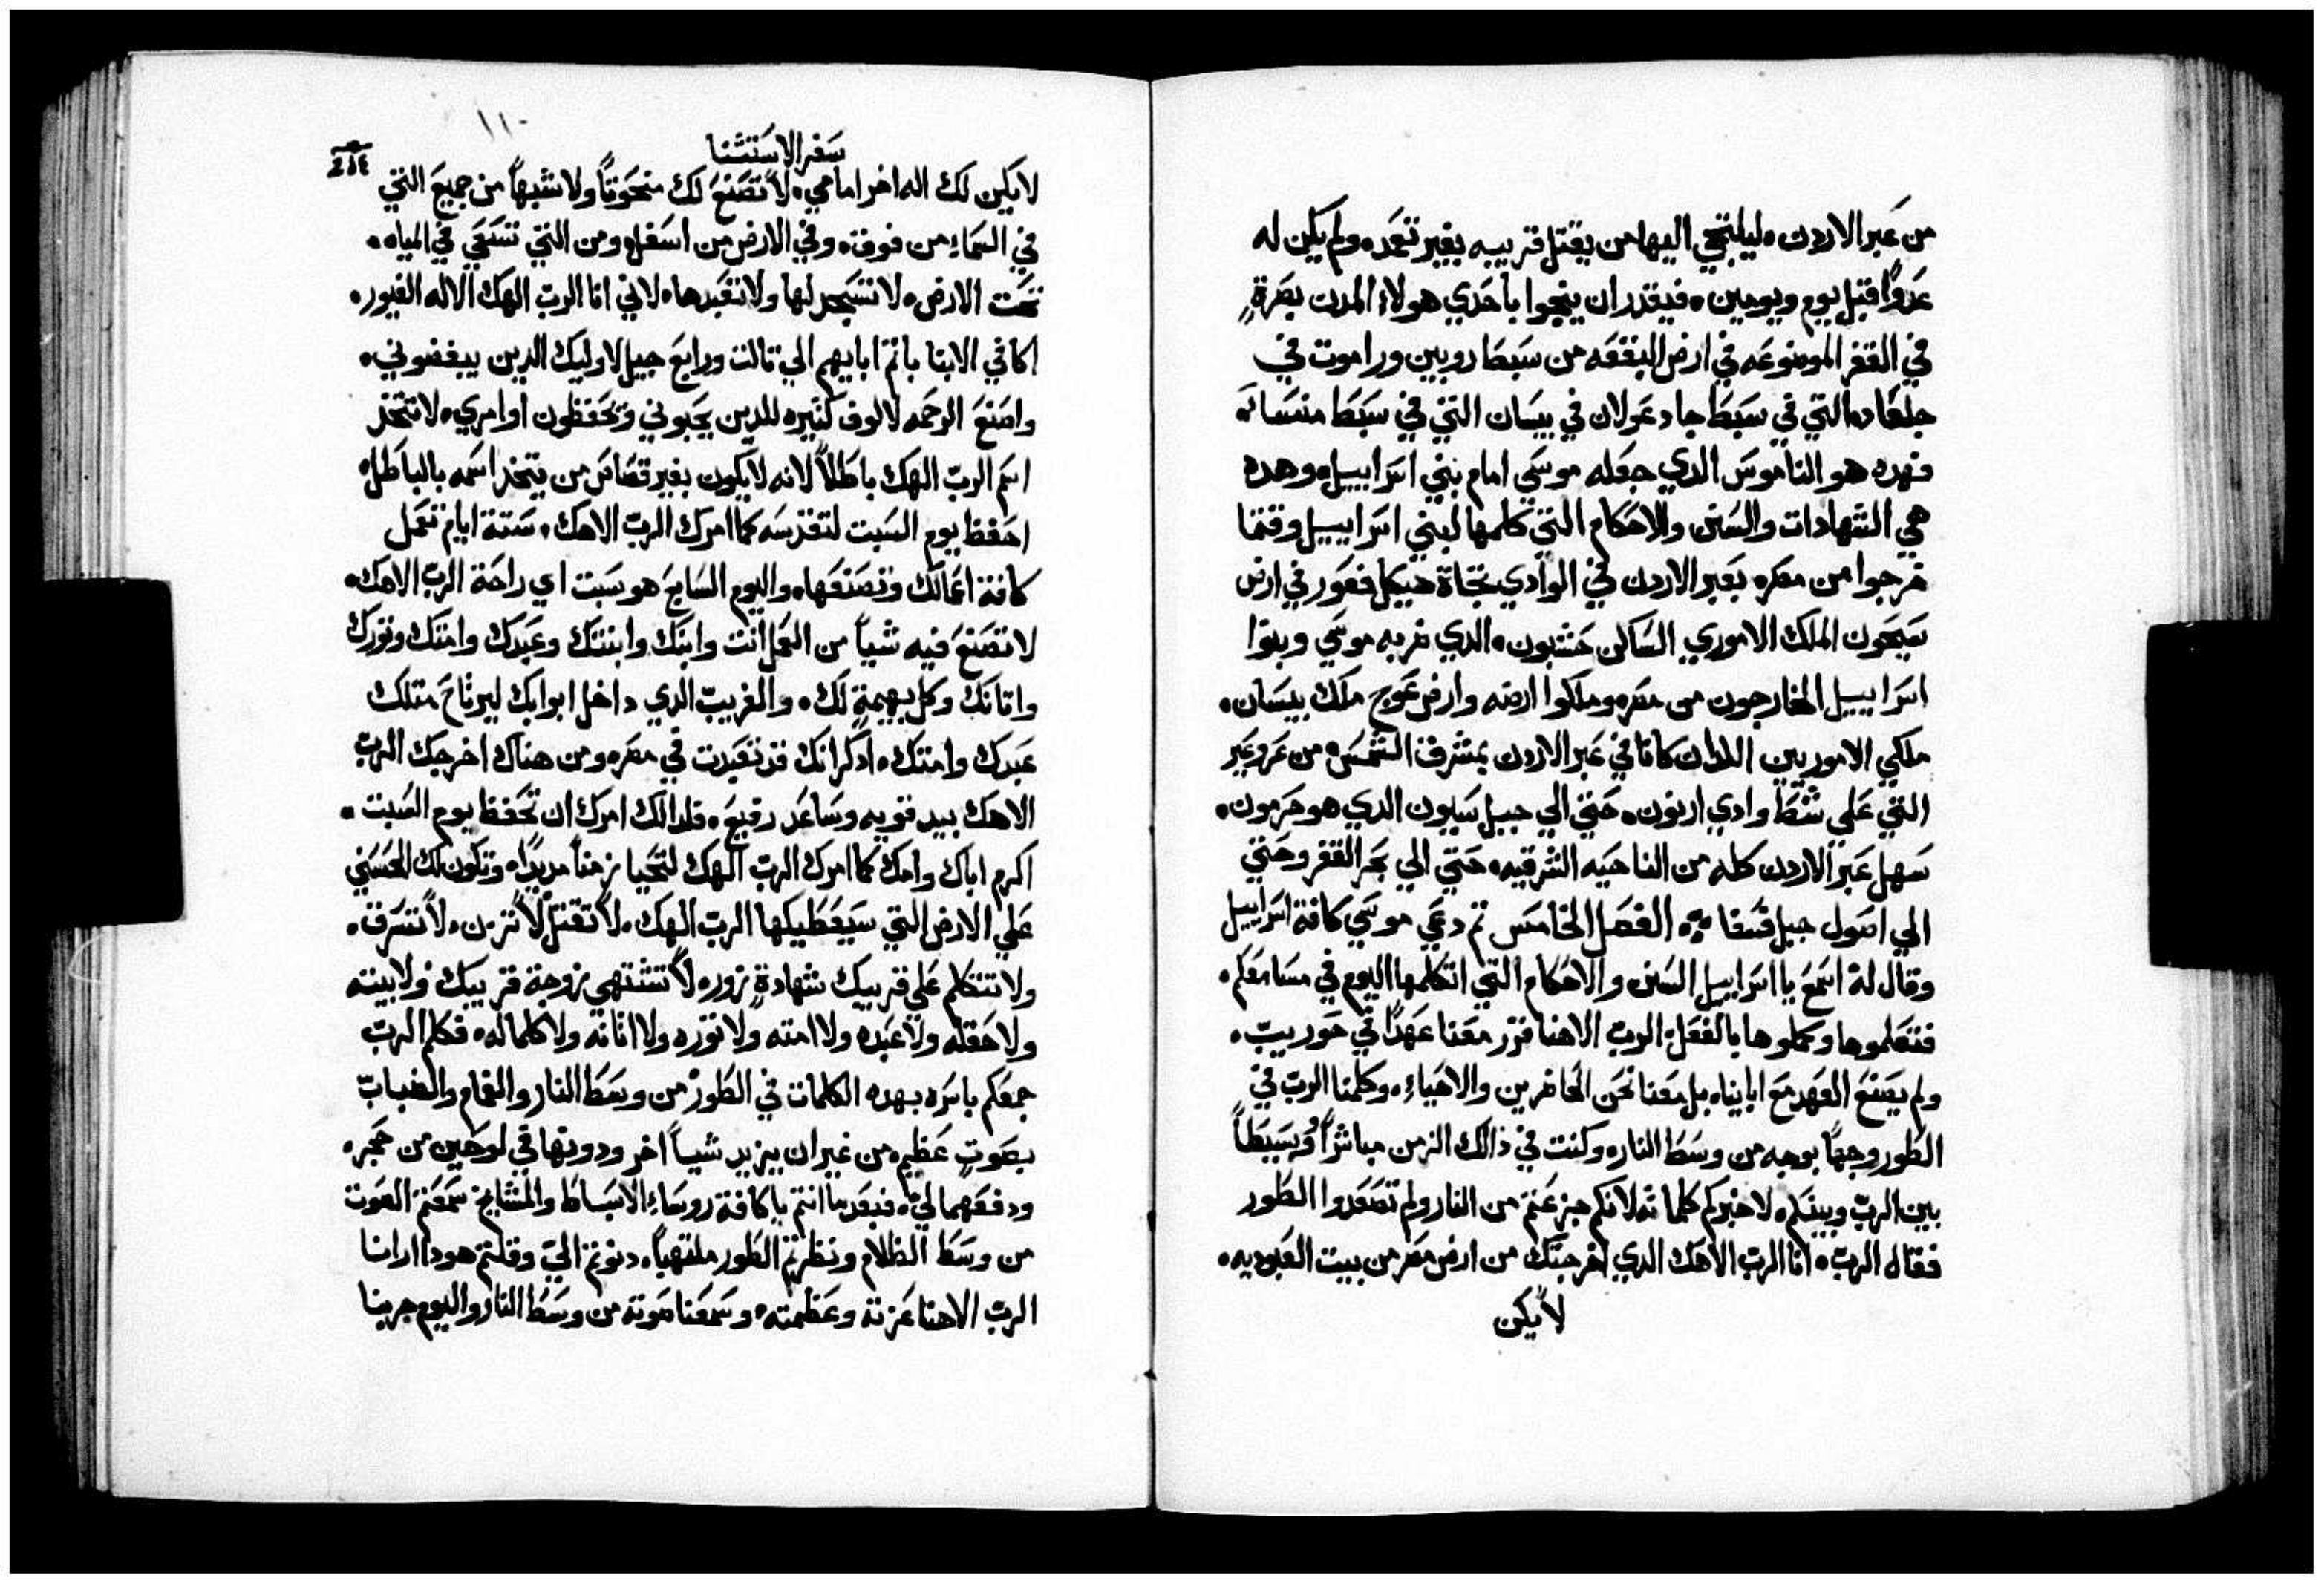 من عبر الاردن ليلتجي اليها من يقتل قريبه بغير تعمد ولم يكن له
عدوًا قبل يوم ويومين فيقدر ان ينجوا باحدي هولاء المدن بصرةٍ
في القفر الموضوعه في ارض البقعه من سبط روبين وراموت في
جلعاد التي في سبط جاد عولان في بيسان التي في سبط منسا
فهده هو الناموس الدي جعله موسي امام بني اسراييل وهده
هي الشهادات والسنن والاحكام التي كلمها لبني اسراييل وقتما
خرجوا من مصر بعبر الاردن في الوادي تجاة هيكل فغور في ارض
سيحون الملك الاموري الساكن حشبون الدي ضربه موسي وبنوا
اسراييل الخارجون من مصر وملكوا ارضه وارض عوج ملك بيسان
ملكي الاموريين اللدان كانا في عبر الاردن بمشرق الشمس من عروعير
التي علي شط وادي ارنون حتي الي جبل سيون الدي هو حرمون
سهل عبر الاردن كله من الناحيه الشرقيه حتي الي بحر القفر وحتي
الي اصول جبل فسفا الفصل الخامس تم دعي موسي كافة اسراييل
وقال له اسمع يا اسراييل السنن والاحكام التي اتكلمها اليوم في مسامعكم
فتعلموها وكملوها بالفعل الرب الاهنا قرر معنا عهدًا في حوريب
ولم يصنع العهد مع اباينا بل معنا نحن الحاضرين والاحياء وكلمنا الرب في
الطور وجهًا بوجه من وسط النار وكنت في ذالك الزمن مباشرًا وسيطًا
بين الرب وبينكم لاخبركم كلماته لانكم جزعتم من النار ولم تصعدوا الطور
فقال الرب انا الرب الاهك الدي اخرجتك من ارض مصر من بيت العبوديه
لا يكن
١١٠
سفر الاستثنا
لا يكن لك اله اخر امامي لا تصنع لك منحوتًا ولا شبهًا من جميع التي
في السماء من فوق وفي الارض من اسفل ومن التي تسعي في المياه
تحت الارض لا تسجد لها ولا تعبدها لاني انا الرب الهك الاله الغيور
اكافي الابنا باتم ابايهم الي تالت ورابع جيل لاوليك الدين يبغضوني
واصنع الرحمه لالوف كتيره للدين يحبوني ويحفظون اوامري لا تتخد
اسم الرب الهك باطلاً لانه لا يكون بغير قصاص من يتخد اسمه بالباطل
احفظ يوم السبت لتقدسه كما امرك الرب الاهك ستة ايام تعمل
كافة اعمالك وتصنعها واليوم السابع هو سبت اي راحة الرب الاهك
لا تصنع فيه شياً من العمل انت وابنك وابنتك وعبدك وامتك وتورك
واتانك وكل بهيمةٍ لك والغريب الدي داخل ابوابك ليرتاح متلك
عبدك وامتك ادكر انك قد تعبدت في مصر ومن هناك اخرجك الرب
الاهك بيد قويه وساعد رفيع فلدالك امرك ان تحفظ يوم السبت
اكرم اباك وامك كما امرك الرب الهك لتحيا زمناً مديدًا وتكون لك الحسني
علي الارض التي سيعطيكها الرب الهك لا تقتل لا تزن لا تسرق
ولا تتكلم علي قريبك شهادةٍ زور لا تشتهي زوجة قريبك ولا بيته
ولا حقله ولا عبده ولا امته ولا توره ولا اتانه ولا كلما له فكلم الرب
جمعكم باسره بهده الكلمات في الطور من وسط النار والغمام والضباب
بصوتٍ عظيم من غير ان يزيد شياً اخر ودونها في لوحين من حجر
ودفعهما لي فبعدما انتم يا كافة روساء الاسباط والمشايخ سمعتم الصوت
من وسط الظلام ونظرتم الطور ملتهباً دنوتم الي وقلتم هودا ارانا
الرب الاهنا عزته وعظمته وسمعنا صوته من وسط النار واليوم جربنا